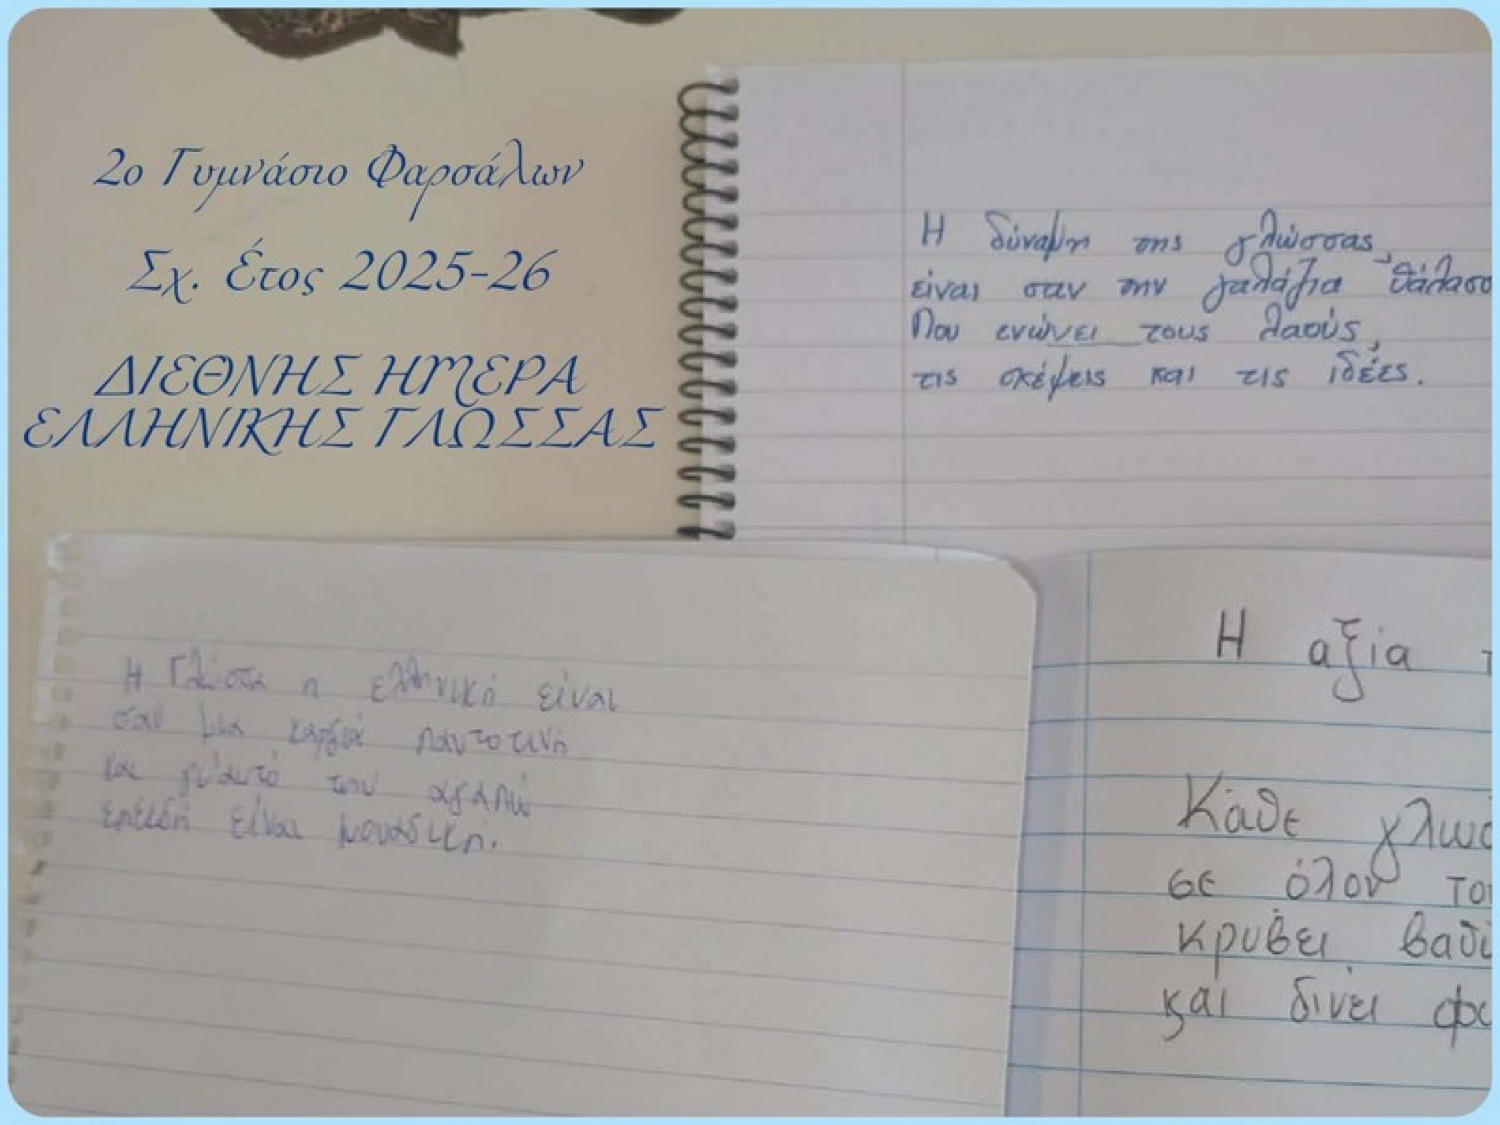 2ο Γυμνάσιο Φαρσάλων
Σχ. Έτος 2025-26
ΔΙΕΘΝΗΣ ΗΜΕΡΑ
ΕΛΛΗΝΙΚΗΣ ΓΛΩΣΣΑΣ
Η δύναμη της γλώσσας,
είναι σαν την γαλάζια θάλασσ
Που ενώνει τους λαούς,
τις σκέψεις και τις ιδέες.
Η Γλώσσα η ελληνική είναι
σαν μια καρδιά παντοτινή
και γι'αυτό την αγαπώ
επειδή είναι μοναδική.
Η αξία τ
Κάθε γλώσ
σε όλον το
κρύβει βαθι
και δίνει φω